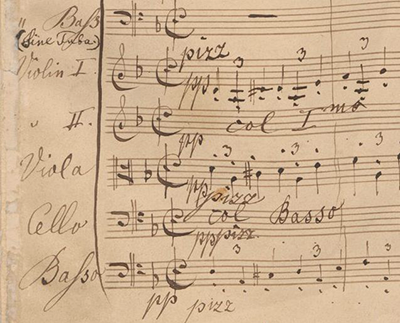 " Bass
(Sine Tuba.)
Violin I. pizz 3 3
pp
" II. col Imo
pp
Viola 3 3
pp pizz
Cello col Basso
pp pizz
Basso 3 3
pp pizz